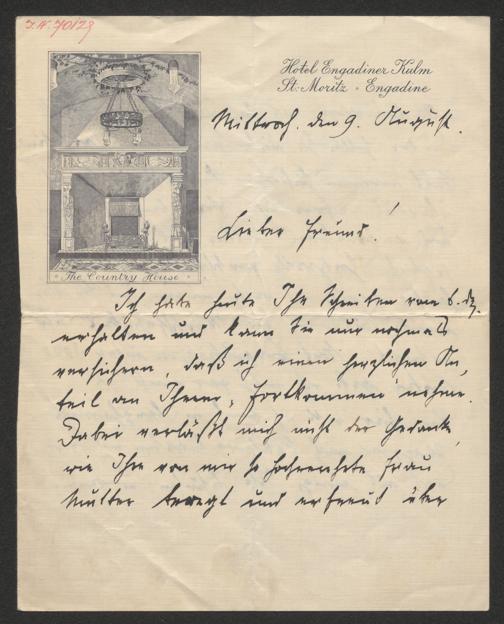 I.N. 70129
Hotel Engadiner Kulm
St. Moritz - Engadine
Mittwoch. den 9. August.
The Country House
Lieber Freund!
Ich habe heute Ihr Schreiben vom 6. dz.
erhalten und kann Sie nur nochmals
versichern, daß ich einen herzlichen An,
teil an Ihrem „Fortkommen“ nehme.
Dabei verläßt mich nicht der Gedanke,
wie Ihre von mir so hochverehrte Frau
Mutter bewegt und erfreut über